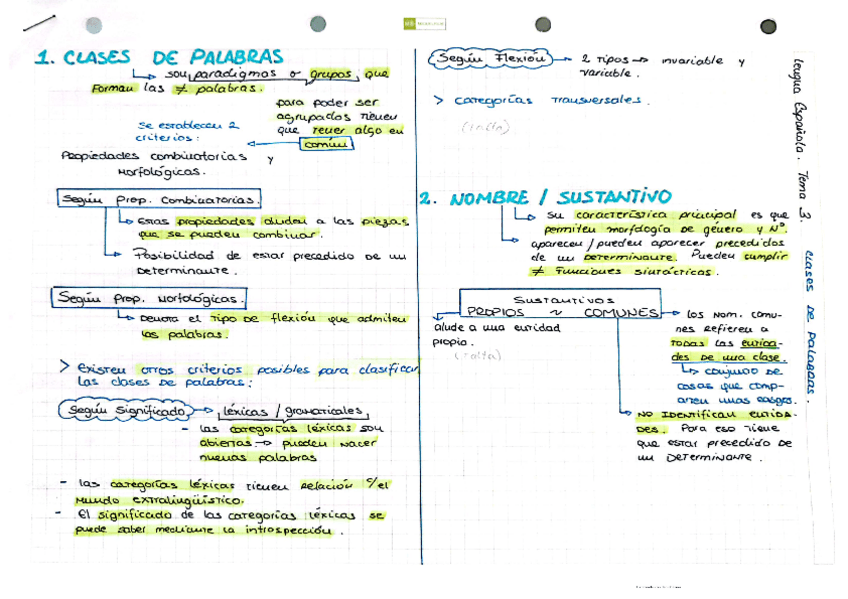 1. CLASES DE PALABRAS
sou paradigmas o grupos, que
Forman las ≠ palabras.
para poder ser
agrupados tienen
que tener algo en
común
Se establecen 2
criterios:
Propiedades combinatorias y
Morfológicas.
Según Prop. Combinatorias.
Estas propiedades aluden a las piezas
que se pueden combinar.
Posibilidad de estar precedido de un
Determinante.
Según Prop. Morfológicas.
Denota el tipo de flexión que admiten
las palabras.
> Existen otros criterios posibles para clasificar
las clases de palabras:
Según Significado → léxicas / gramaticales
- las categorías léxicas son
abiertas → pueden nacer
nuevas palabras
- las categorías léxicas tienen relación c/el
mundo extralingüístico.
- El significado de las categorías léxicas se
puede saber mediante la introspección.
Según Flexión → 2 Tipos → invariable y
variable.
> Categorías Transversales.
(Falta)
2. NOMBRE / SUSTANTIVO
Su característica principal es que
permiten morfología de género y Nº.
aparecen / pueden aparecer precedidos
de un Determinante. Pueden cumplir
≠ Funciones sintácticas.
Sustantivos
PROPIOS ~ COMUNES
alude a una entidad
propia.
(Falta)
los Nom. Comu-
nes refieren a
Todas las entida-
des de una clase.
conjunto de
cosas que comp-
arten unos rasgos.
NO IDENTIFICAN entida-
des. Para eso tiene
que estar precedido de
un Determinante.
Lengua Española. Tema 3. CLASES DE PALABRAS.